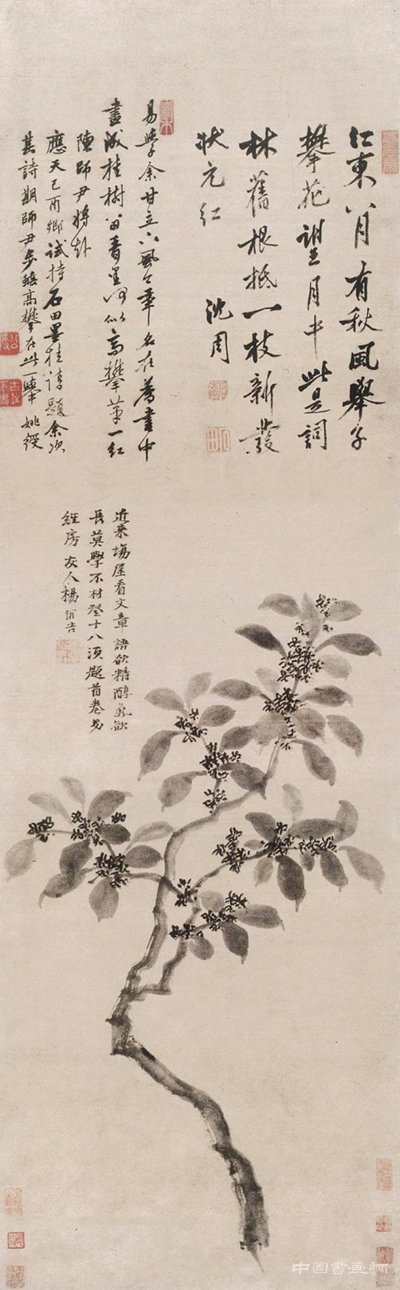 江東八月有秋風舉子
攀花詣月中此是詞
林舊根柢一枝新發
狀元紅 沈周
易學余甘立下風今年名在薦書中
畫成桂樹留看何似高攀第一紅
陳師尹將赴
應天己酉鄉試持石田墨桂請題余次
其詩期師尹步蟾高攀在此一舉 姚綬
近來場屋看文章語欲精醇氣欲
長莫學不材登十八須題首卷易
經房 友人楊循吉
中国书画網